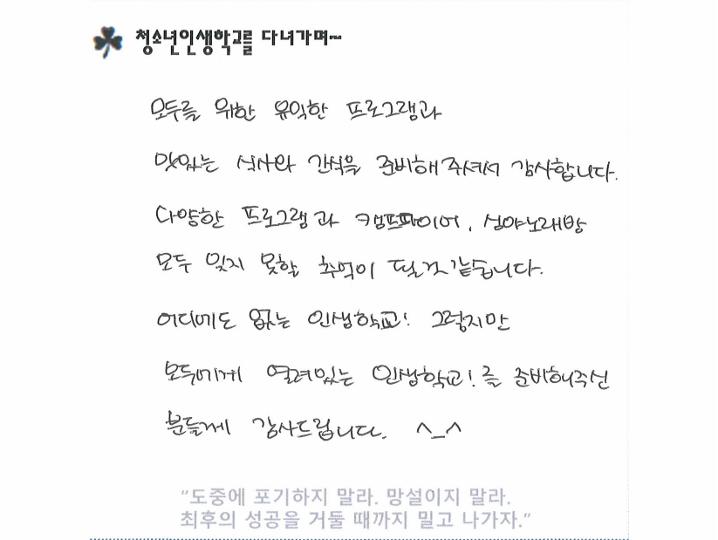 청소년인생학교를 다녀가며~
모두를 위한 유익한 프로그램과
맛있는 식사와 간식을 준비해주셔서 감사합니다.
다양한 프로그램과 캠프파이어, 심야노래방
모두 잊지 못할 추억이 될것같습니다.
어디에도 없는 인생학교! 그렇지만
모두에게 열려있는 인생학교!를 준비해주신
분들께 감사드립니다. ^_^
"도중에 포기하지 말라. 망설이지 말라.
최후의 성공을 거둘 때까지 밀고 나가자."